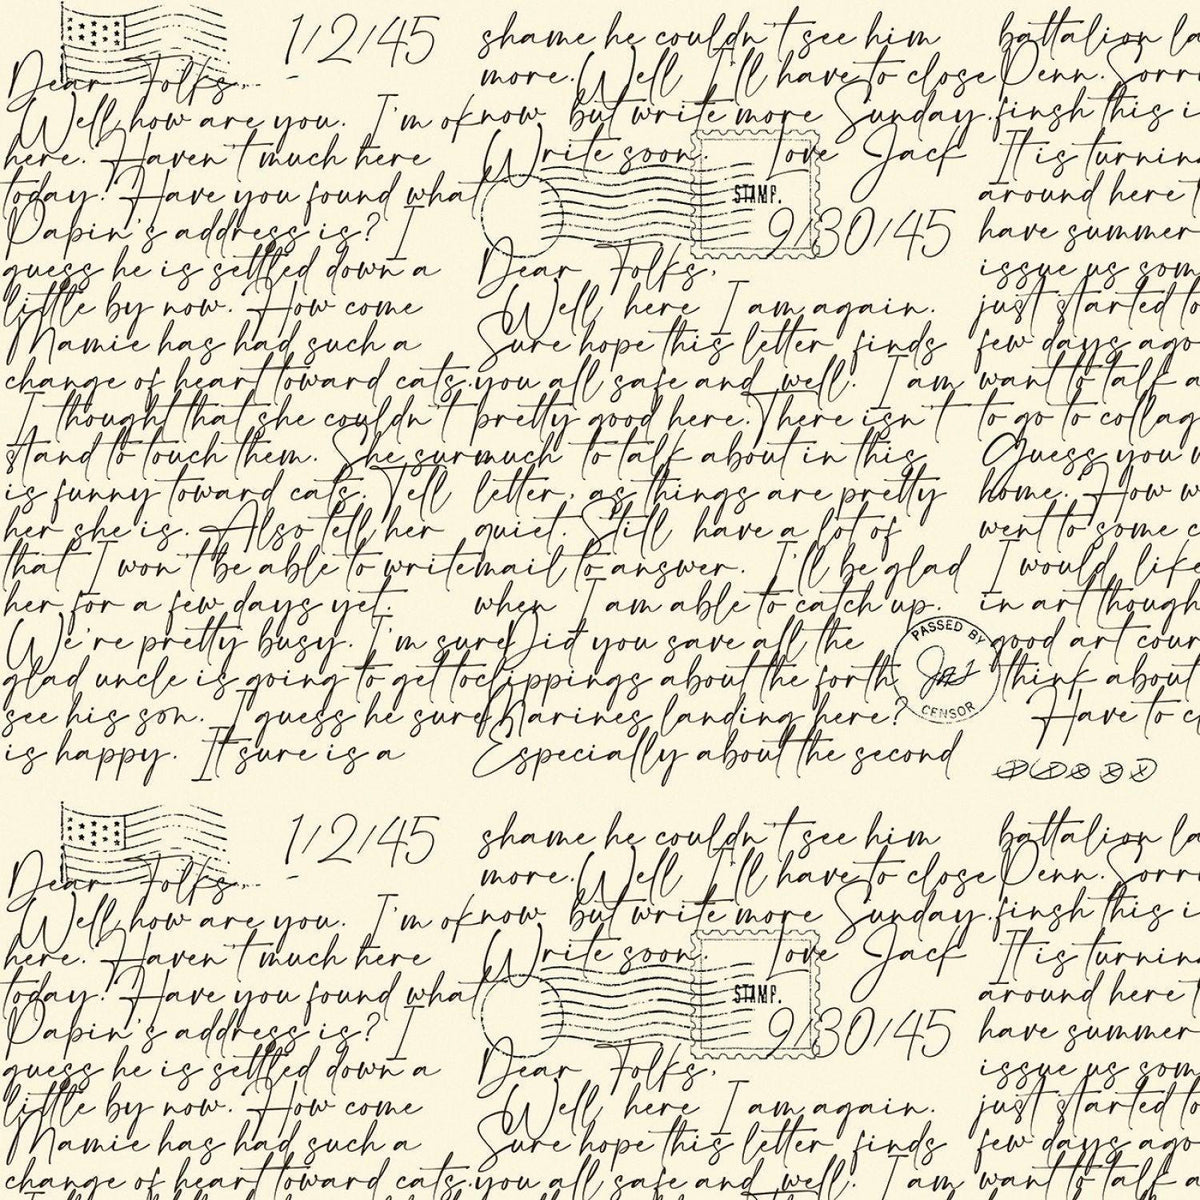 1/2/45
Dear Folks,
Well how are you. I'm ok
here. Haven't much here
today. Have you found what
Papin's address is? I
guess he is settled down a
little by now. How come
Mamie has had such a
change of heart toward cats.
I thought that she couldn't
stand to touch them. She sur
is funny toward cats. Tell
her she is. Also tell her
that I won't be able to write
her for a few days yet.
We're pretty busy. I'm sure
glad uncle is going to get to
see his son. I guess he sure
is happy. It sure is a
shame he couldn't see him
more. Well I'll have to close
now but write more Sunday.
Write soon. Love Jack
STAMP.
9/30/45
Dear Folks,
Well here I am again.
Sure hope this letter finds
you all safe and well. I am
pretty good here. There isn't
much to talk about in this
letter, as things are pretty
quiet. Still have a lot of
mail to answer. I'll be glad
when I am able to catch up.
Did you save all the
clippings about the forth
Marines landing here?
Especially about the second
PASSED BY
CENSOR
battalion la
Penn. Sorri
finsh this i
It is turnin
around here t
have summer
issue us som
just started to
few days ago
want to talk a
to go to collag
Guess you w
home. How w
went to some c
I would like
in art though
good art cour
think about
Have to c
1/2/45
Dear Folks,
Well how are you. I'm ok
here. Haven't much here
today. Have you found what
Papin's address is? I
guess he is settled down a
little by now. How come
Mamie has had such a
change of heart toward cats.
shame he couldn't see him
more. Well I'll have to close
now but write more Sunday.
Write soon. Love Jack
STAMP.
9/30/45
Dear Folks,
Well here I am again.
Sure hope this letter finds
you all safe and well. I am
battalion la
Penn. Sorri
finsh this i
It is turnin
around here t
have summer
issue us som
just started to
few days ago
want to talk a